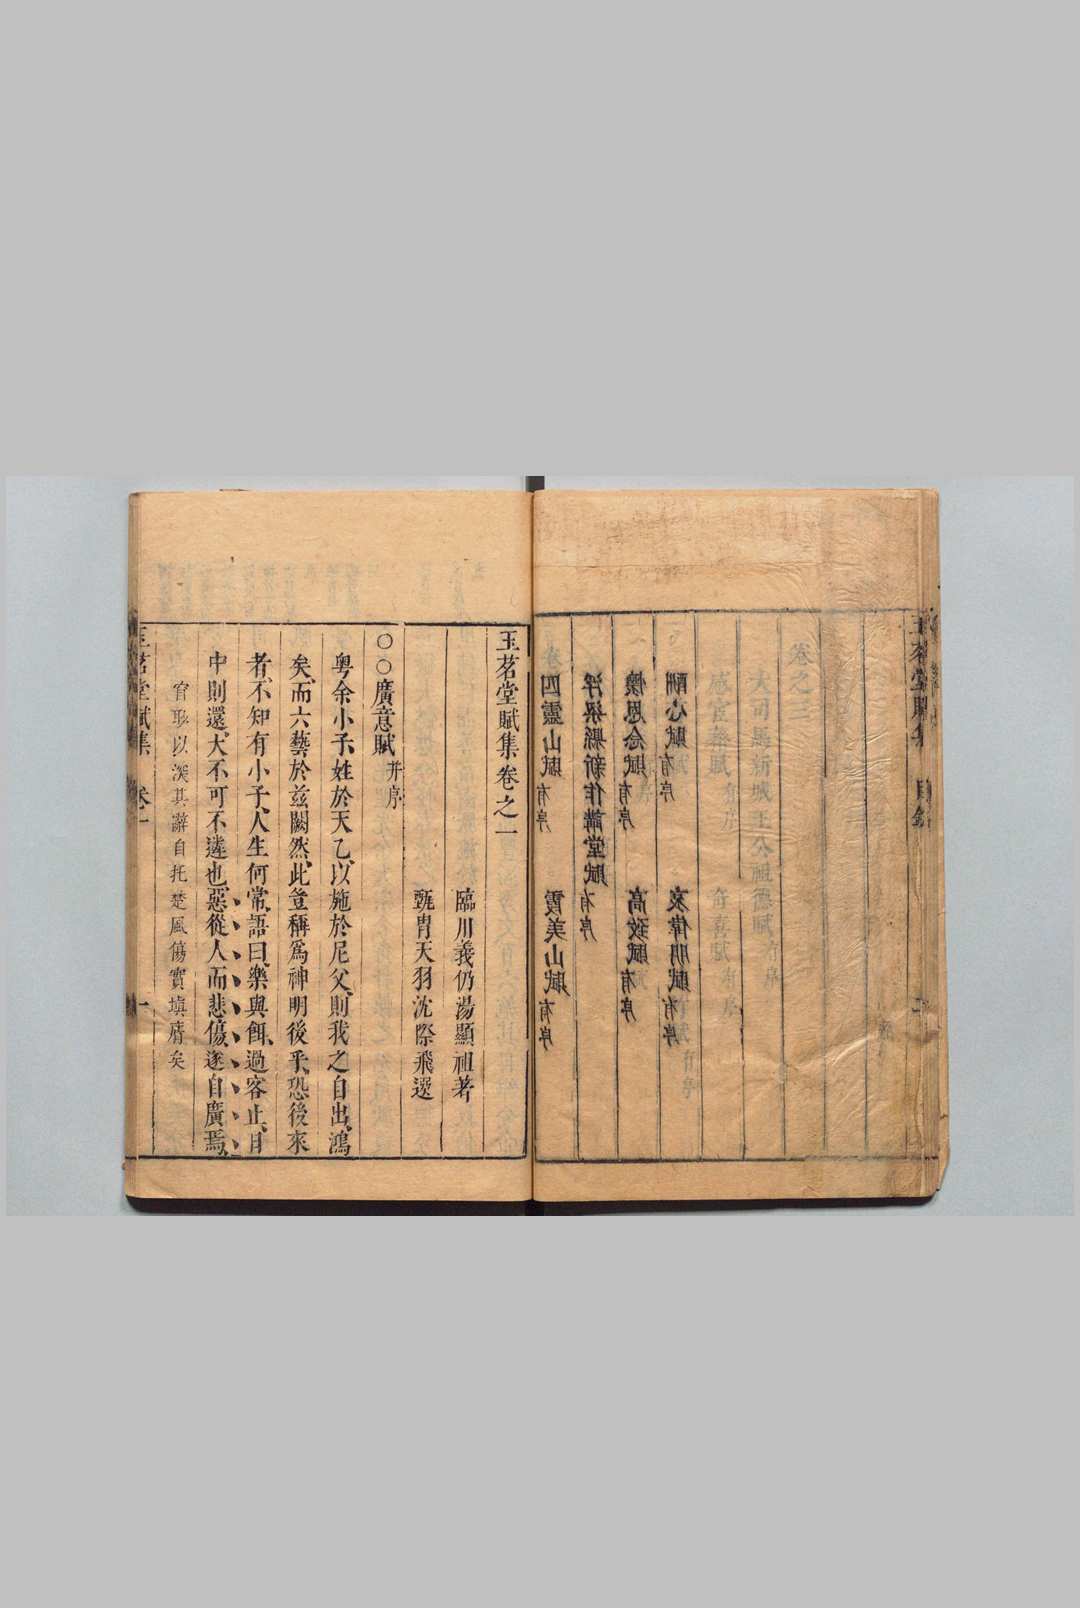 玉茗堂賦集 目錄
卷之三
大司馬新城王公祖德賦有序
感宦籍賦有序 奇喜賦有序
酬心賦有序 哀偉朋賦有序
懷恩念賦有序 高致賦有序
浮梁縣新作講堂賦有序
四靈山賦有序 霞美山賦有序
玉茗堂賦集卷之一
臨川義仍湯顯祖著
甄胄天羽沈際飛選
○○廣意賦并序
粤余小子、姓於天乙、以施於尼父、則我之自出、鴻
矣、而六藝於茲闕然、此豈稱爲神明後乎、恐後來
者、不知有小子、人生何常、語曰、樂與餌、過客止、目
中則還、大不可不遽也、惡從人而悲傷、遂自廣焉、
官耶以漢其辭自托楚風傷實塡膺矣
玉茗堂賦集 卷一 一